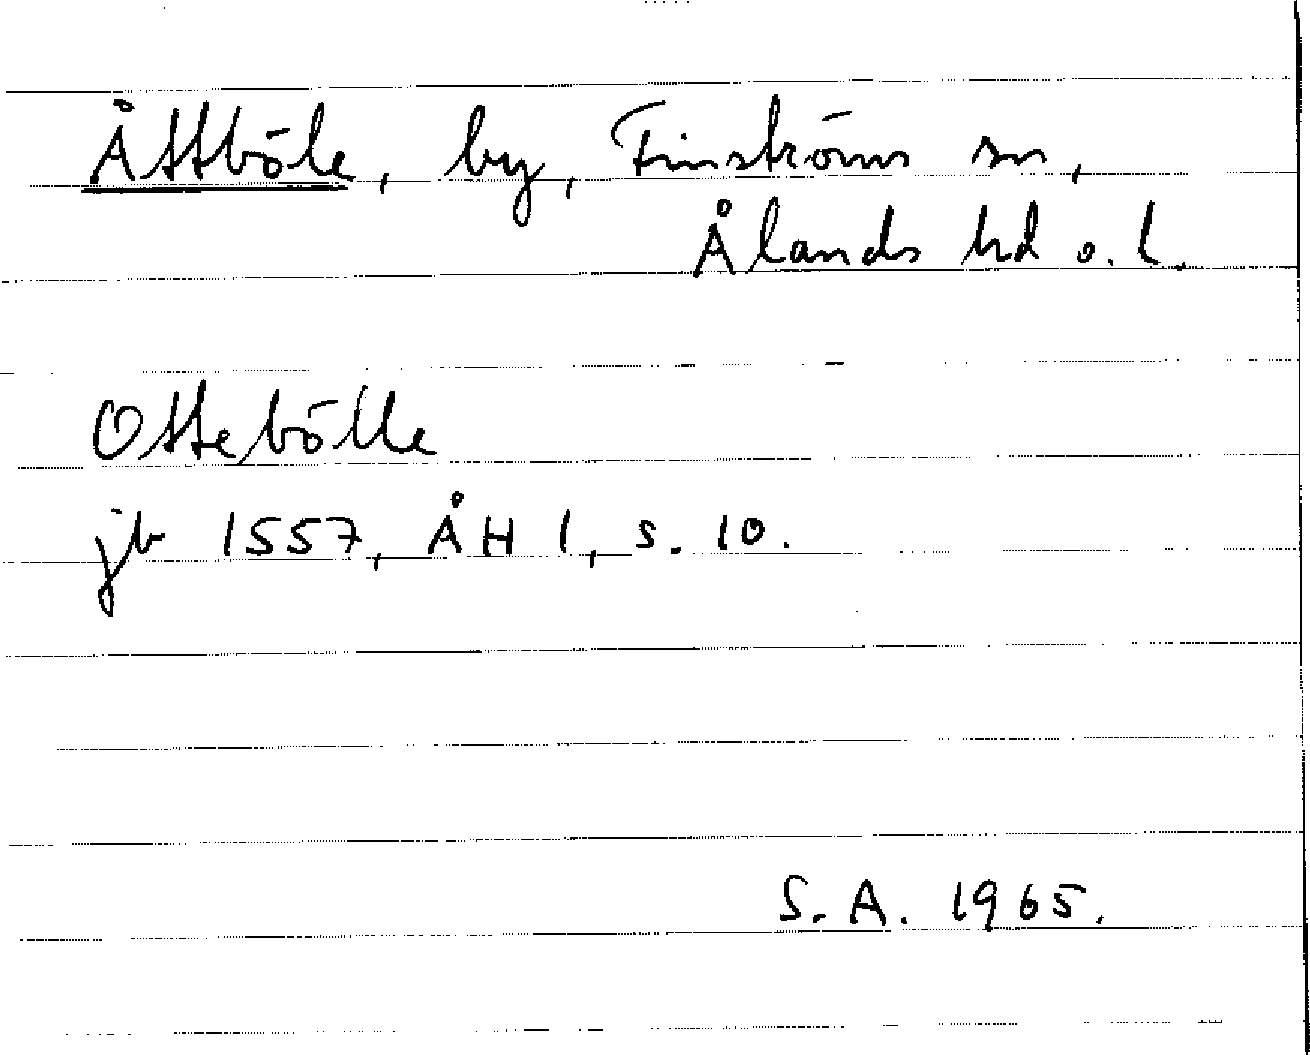 Åttböle, by, Finströms sn,
Ålands hd o. l.
Ottebölle
jb 1557, ÅH 1, s. 10.
S. A. 1965.